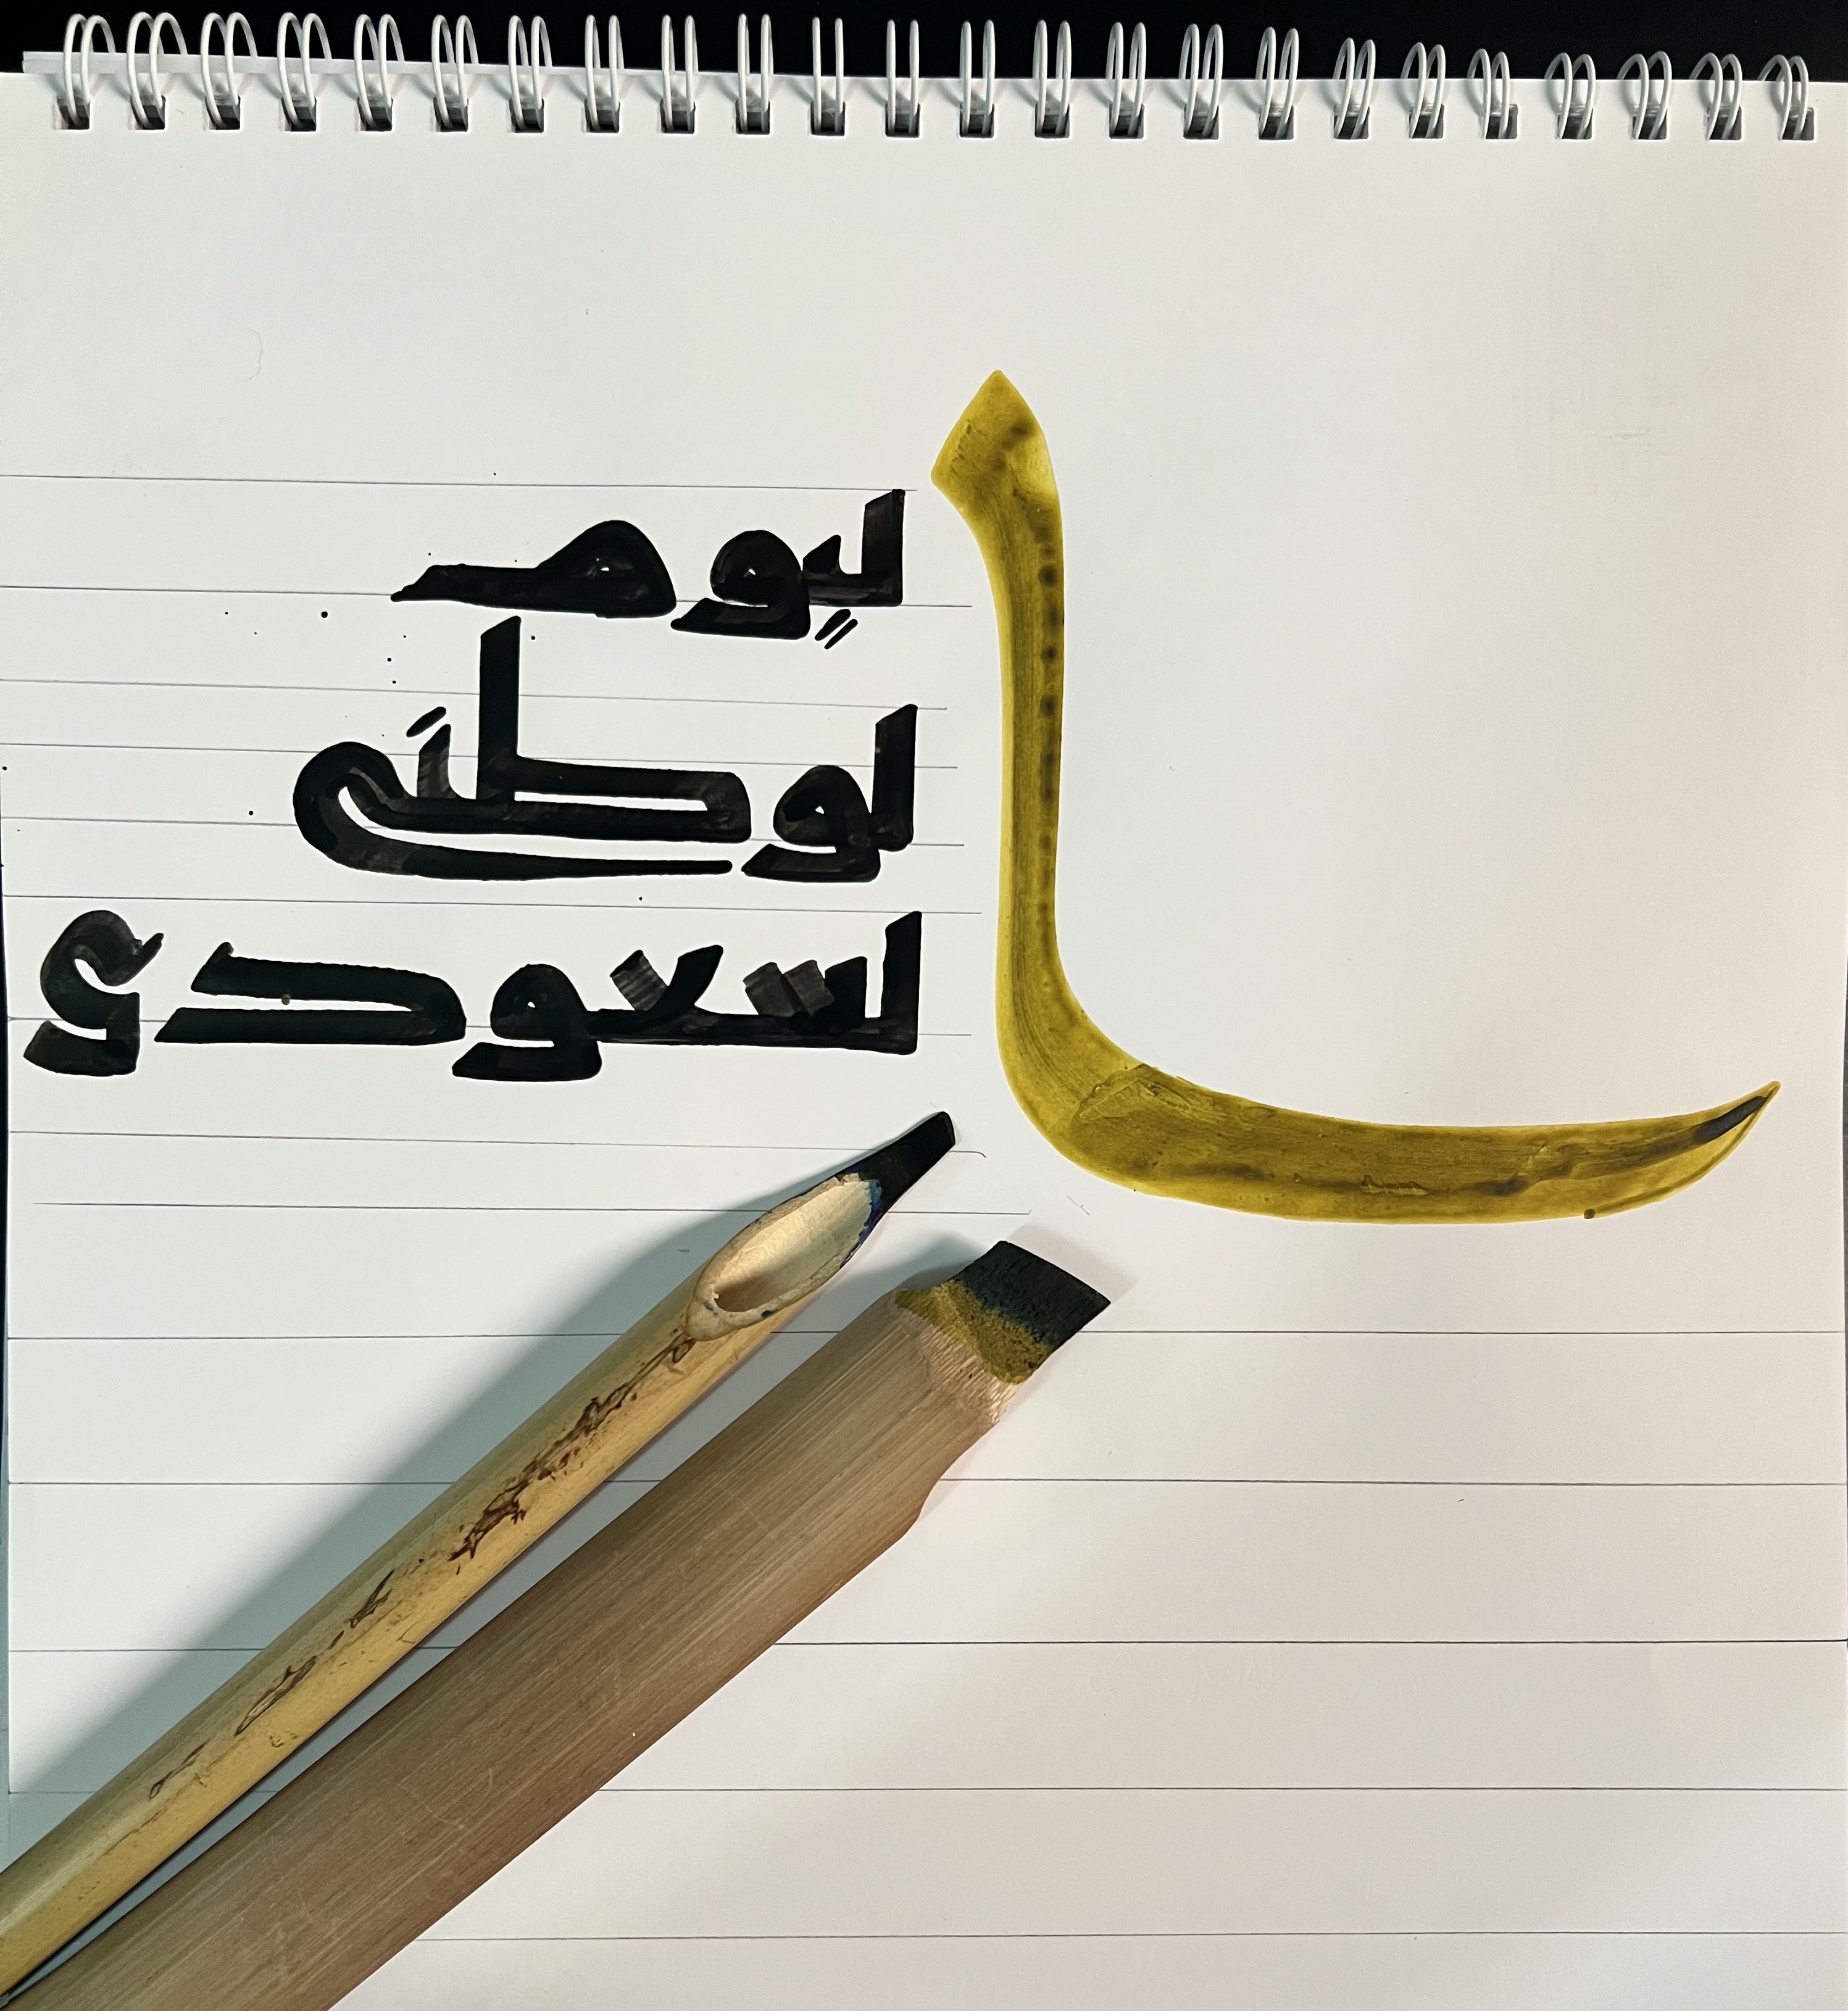 اليوم
الوطني
السعودي